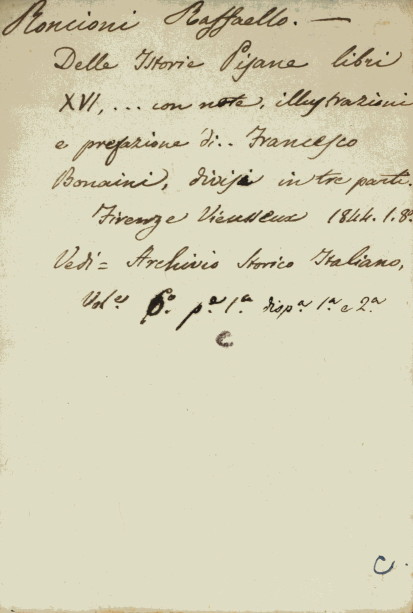 Roncioni Raffaello. —
Delle Istorie Pisane libri
XVI, ... con note, illustrazioni
e prefazione di.. Francesco
Bonaini, divisi in tre parti.
Firenze Vieusseux 1844. 1. 8º.
Vedi = Archivio Storico Italiano,
Vol.e 6.º p.e 1.a disp.a 1.a e 2.a
C
C.